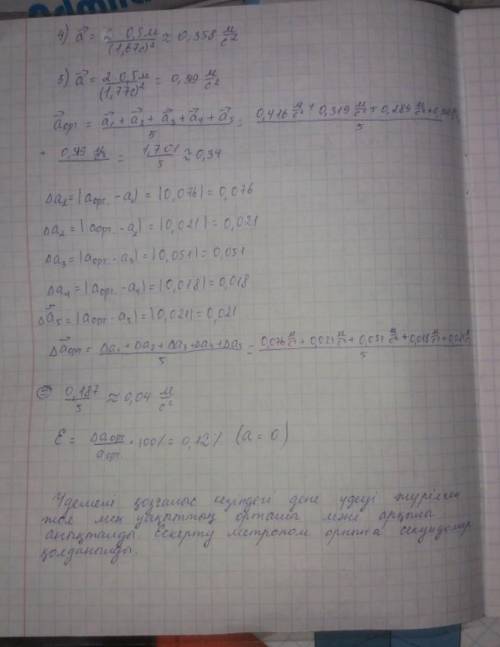 4) a⃗ = 2·0,5м / (1,67с)² ≈ 0,358 м/с²
5) a⃗ = 2·0,5м / (1,77с)² = 0,39 м/с²
a⃗орт = a⃗₁ + a⃗₂ + a⃗₃ + a⃗₄ + a⃗₅ / 5 = 0,416 м/с² + 0,319 м/с² + 0,289 м/с² +
= 1,701 / 5 ≈ 0,34
Δa₁ = |aорт. - a₁| = |0,076| = 0,076
Δa₂ = |aорт. - a₂| = |0,021| = 0,021
Δa₃ = |aорт. - a₃| = |0,051| = 0,051
Δa₄ = |aорт. - a₄| = |0,018| = 0,018
Δa⃗₅ = |aорт - a₅| = |0,021| = 0,021
Δa⃗орт = Δa₁ + Δa₂ + Δa₃ + Δa₄ + Δa₅ / 5 = 0,076 м/с² + 0,021 м/с² + 0,051 м/с² + 0,018 м/с² + / 5
= 0,187 / 5 ≈ 0,04 м/с²
Ɛ = Δaорт / aорт · 100% = 0,12% (a = 0)
Үдемелі қозғалыс кезіндегі дене үдеуі жүрілген
жол мен уақыттың орташа мәні арқылы
анықталды. Ескерту метроном орнына секундомер
қолданылды.